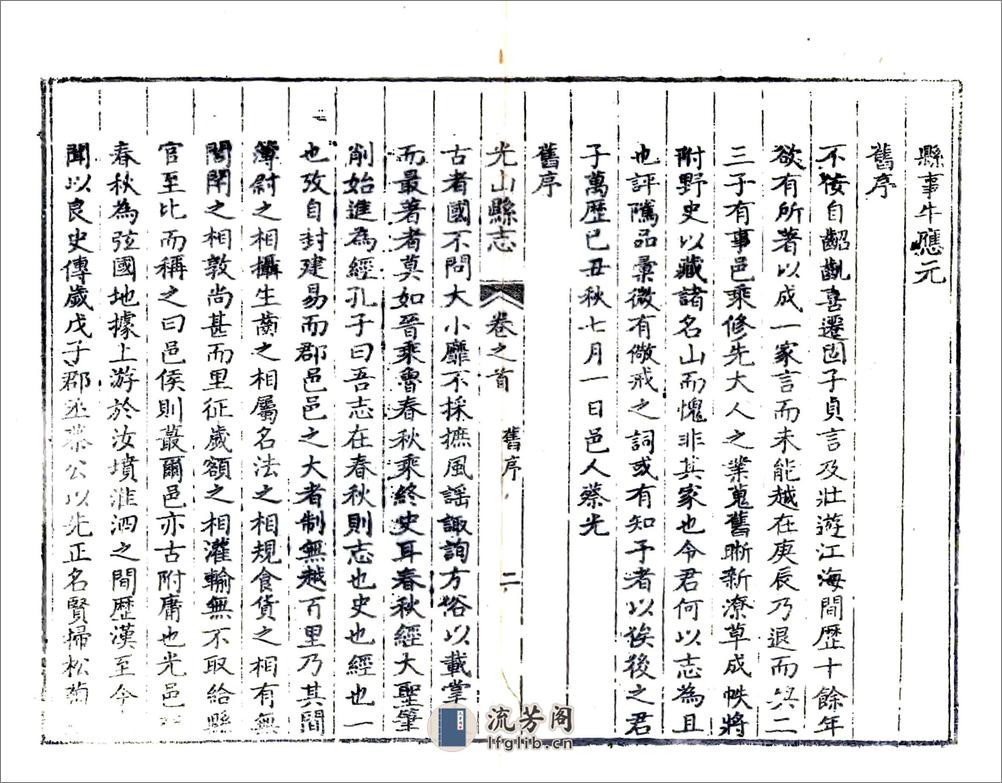 縣事牛應元
舊序
不佞自齠齔喜遷固子貞言及壯遊江海間歷十餘年
欲有所著以成一家言而未能越在庚辰乃退而與二
三子有事邑乘修先大人之業蒐舊晰新潦草成帙將
附野史以藏諸名山而愧非其家也令君何以志為且
也評隲品彙微有儆戒之詞或有知予者以俟後之君
子萬歷己丑秋七月一日邑人蔡光
舊序
光山縣志 卷之首 舊序 二
古者國不問大小靡不採摭風謡諏詢方俗以載掌
而最著者莫如晉乘魯春秋乘終史耳春秋經大聖筆
削始進為經孔子曰吾志在春秋則志也史也經也一
也攷自封建易而郡邑邑之大者制無越百里乃其間
簿尉之相攝生齒之相屬名法之相規食貨之相有無
閭閈之相敦尚甚而里征歲額之相灌輸無不取給縣
官至比而稱之曰邑侯則蕞爾邑亦古附庸也光邑
春秋為弦國地據上游於汝墳淮泗之間歷漢至今
聞以良史傳歲戊子郡丞蔡公以先正名賢掃松菊
流芳阁
lfglib.cn